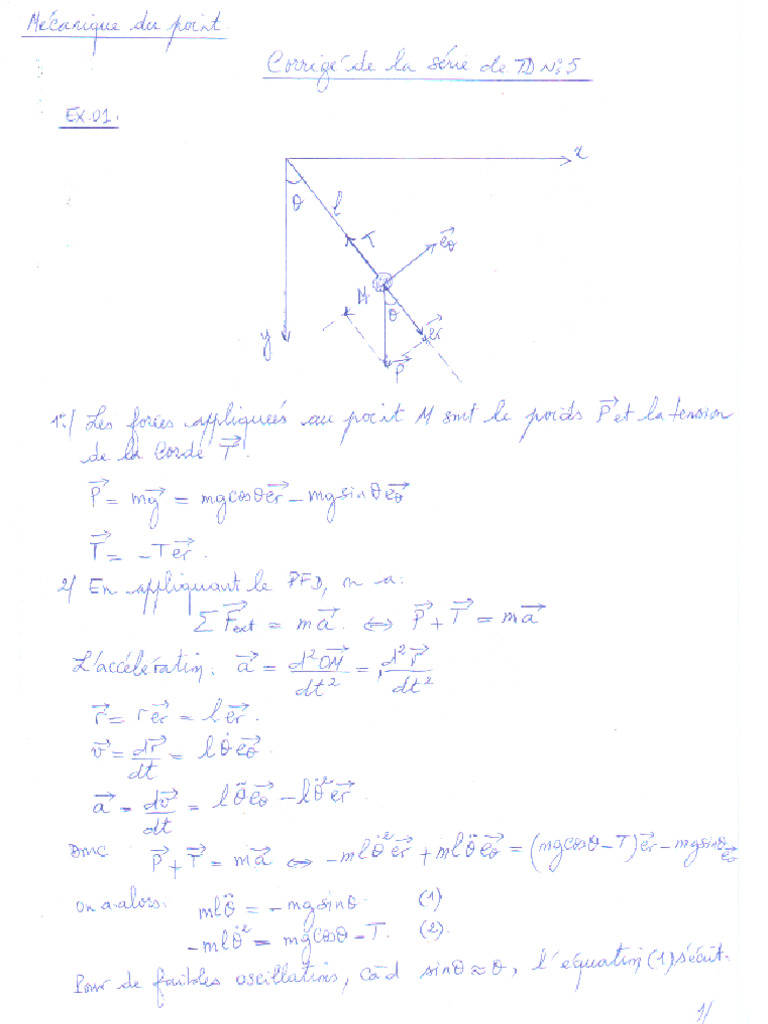 Mécanique du point.
Corrigé de la série de TD N°5
EX.01.
x
θ
l
T
e⃗θ
M
θ
e⃗r
y
P⃗
1°/ Les forces appliquées au point M sont le poids P⃗ et la tension
de la corde T⃗.
P⃗ = mg⃗ = mg cosθ e⃗r − mg sinθ e⃗θ
T⃗ = −T e⃗r.
2/ En appliquant le PFD, on a:
Σ F⃗ext = m a⃗ ⇔ P⃗ + T⃗ = m a⃗
L'accélération: a⃗ = d²OM⃗/dt² = d²r⃗/dt²
r⃗ = r e⃗r = l e⃗r.
v⃗ = dr⃗/dt = l θ̇ e⃗θ
a⃗ = dv⃗/dt = l θ̈ e⃗θ − l θ̇² e⃗r.
Donc P⃗ + T⃗ = m a⃗ ⇔ −m l θ̇² e⃗r + m l θ̈ e⃗θ = (mg cosθ − T) e⃗r − mg sinθ e⃗θ
on a alors: m l θ̈ = −mg sinθ. (1)
−m l θ̇² = mg cosθ − T. (2).
Pour de faibles oscillations, càd sinθ ≈ θ, l'équation (1) s'écrit.
1/